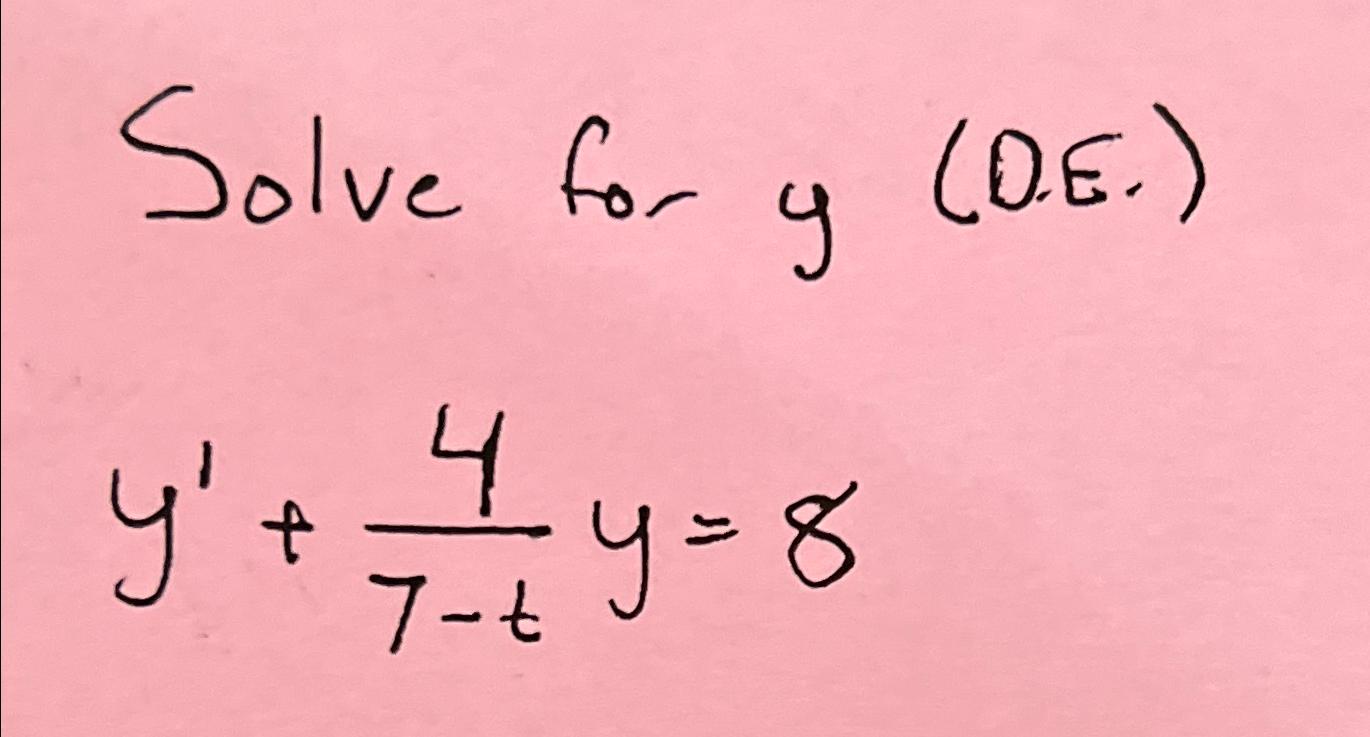 Solve for y (D.E.)
y' + \frac{4}{7-t} y = 8